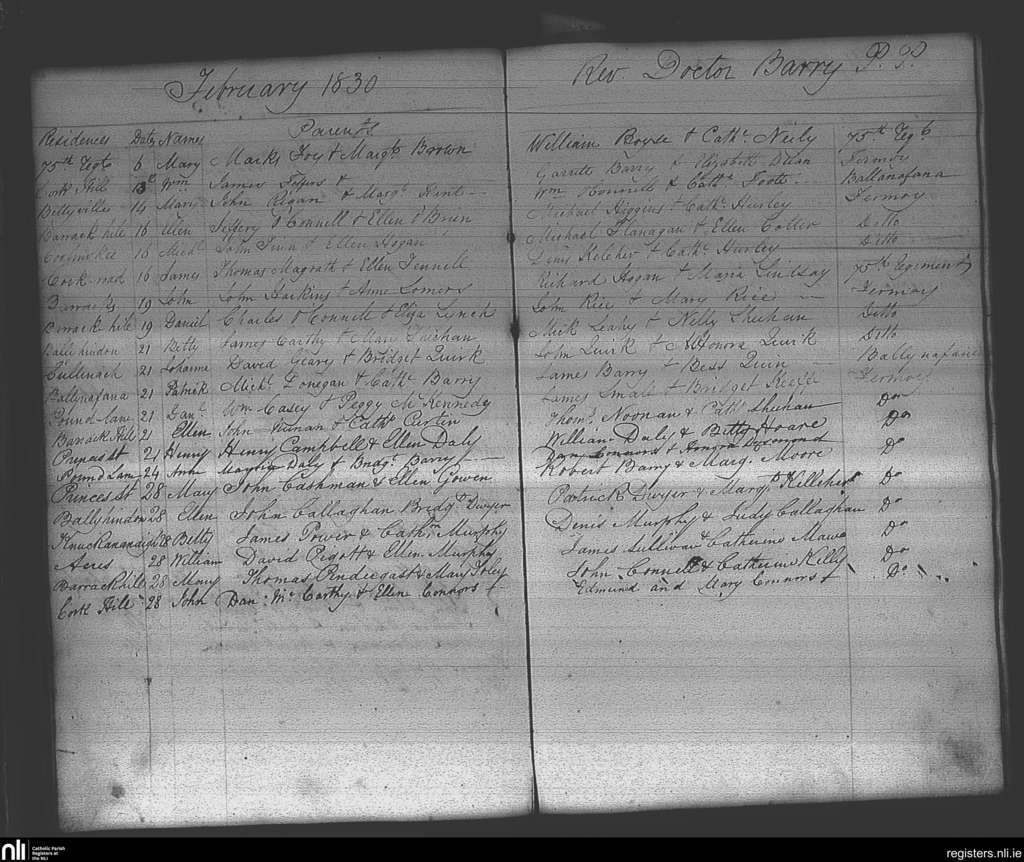 February 1830
Rev. Doctor Barry P. P.
Residences Date Names Parents
75th Regt 6 Mary Mark Foy & Margt Brown William Boyse & Cathe Neily 75th Regt
Cork Hill 13 Wm James & Garrett Barry & Elizabeth Fermoy
Bettyville 14 Mary John Regan & Margt Hunt Wm Connell & Cathe Foote Ballanafana
Barrack hill 16 Ellen Jeffery O Connell & Ellen O Brien Michael Higgins & Cathe Hurley Fermoy
16 Michl John Finn & Ellen Hogan Michael Flanagan & Ellen Cotter Ditto
Cork road 16 James Thomas Magrath & Ellen Fennell Denis Kelcher & Cathe Hurley Ditto
Barracks 19 John John Harkins & Anne Somers Richard Hogan & Maria Lindsay 75th Regiment
Barrack hill 19 Daniel Charles O Connell & Eliza Lynch John Rice & Mary Rice Fermoy
Ballihindon 21 Betty James Carthy & Mary Mick Leahy & Nelly Sheehan Ditto
21 Johanna David Geary & Bridget Quirk John Quirk & Honora Quirk Ditto
Ballinafana 21 Patrick Michl Donegan & Cathe Barry James Barry & Bess Quin Ballynafana
Pound-lane 21 Danl Wm Casey & Peggy McKennedy James Small & Bridget Keeffe Fermoy
Barrack Hill 21 Ellen John & Cathe Curtin Thoms Noonan & Cathe Sheehan Do
Princes st 21 Henry Henry Campbell & Ellen Daly William Daly & Betty Hoare Do
Pound Lane 24 Ann Daly & Bridgt Barry Connors & Honora Desmond
Princes st 28 Mary John Cashman & Ellen Gowen Robert Barry & Marg. Moore Do
Ballyhindon 28 Ellen John Callaghan Bridgt Dwyer Patrick Dwyer & Margt Killeher Do
28 Betty James Power & Cathrn Murphy Denis Murphy & Judy Callaghan Do
Acres 28 William David Pigott & Ellen Murphy James Sullivan & Catherine Do
Barrack hill 28 Mary Thomas Prendergast & Mary Foley John Connell & Catherine Kelly Do
Cork Hill 28 John Danl McCarthy & Ellen Connors Edmund and Mary Connors Do
nli Catholic Parish Registers at the NLI
registers.nli.ie